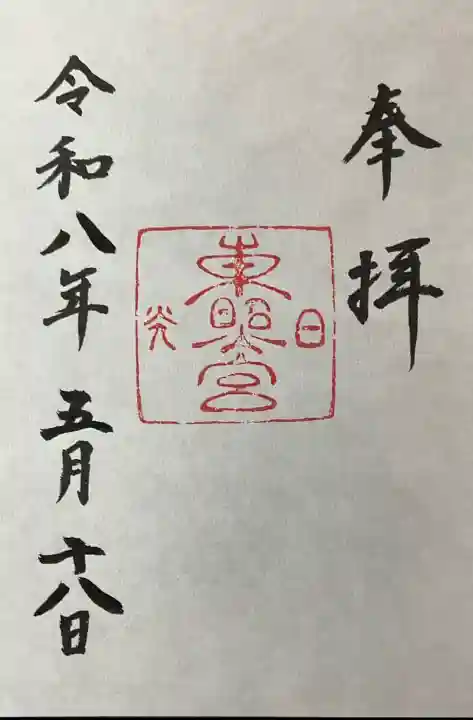 奉拝
日光
東照宮
令和八年五月十八日